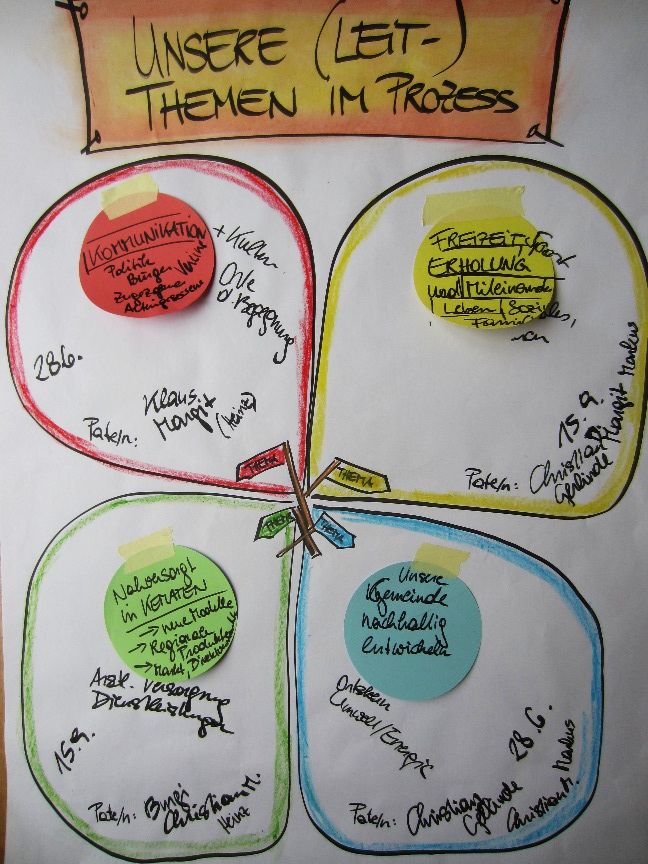 UNSERE (LEIT-)
THEMEN IM PROZESS
KOMMUNIKATION
Politik
Bürger
Zugezogene
+ Kultur
Orte
d. Begegnung
28.6.
Pate/n: Klaus
Margit
(Heinz)
THEMA
FREIZEIT, Sport
ERHOLUNG
und Miteinander
Leben / Soziales,
15.9.
Pate/n: Christian
Gerlinde
Margit Markus
THEMA
Nahversorgt
in KEMATEN
→ neue Modelle
→ Regionale
Produkte
→ Markt, Direktverm.
Ärztl. Versorgung
Dienstleistungen
15.9.
Pate/n: Burgi
Christian M.
Heinz
THEMA
Unsere
Gemeinde
nachhaltig
entwickeln
Ortskern
Umwelt/Energie
28.6.
Pate/n: Christian
Gerlinde
Christian S. Markus
THEMA